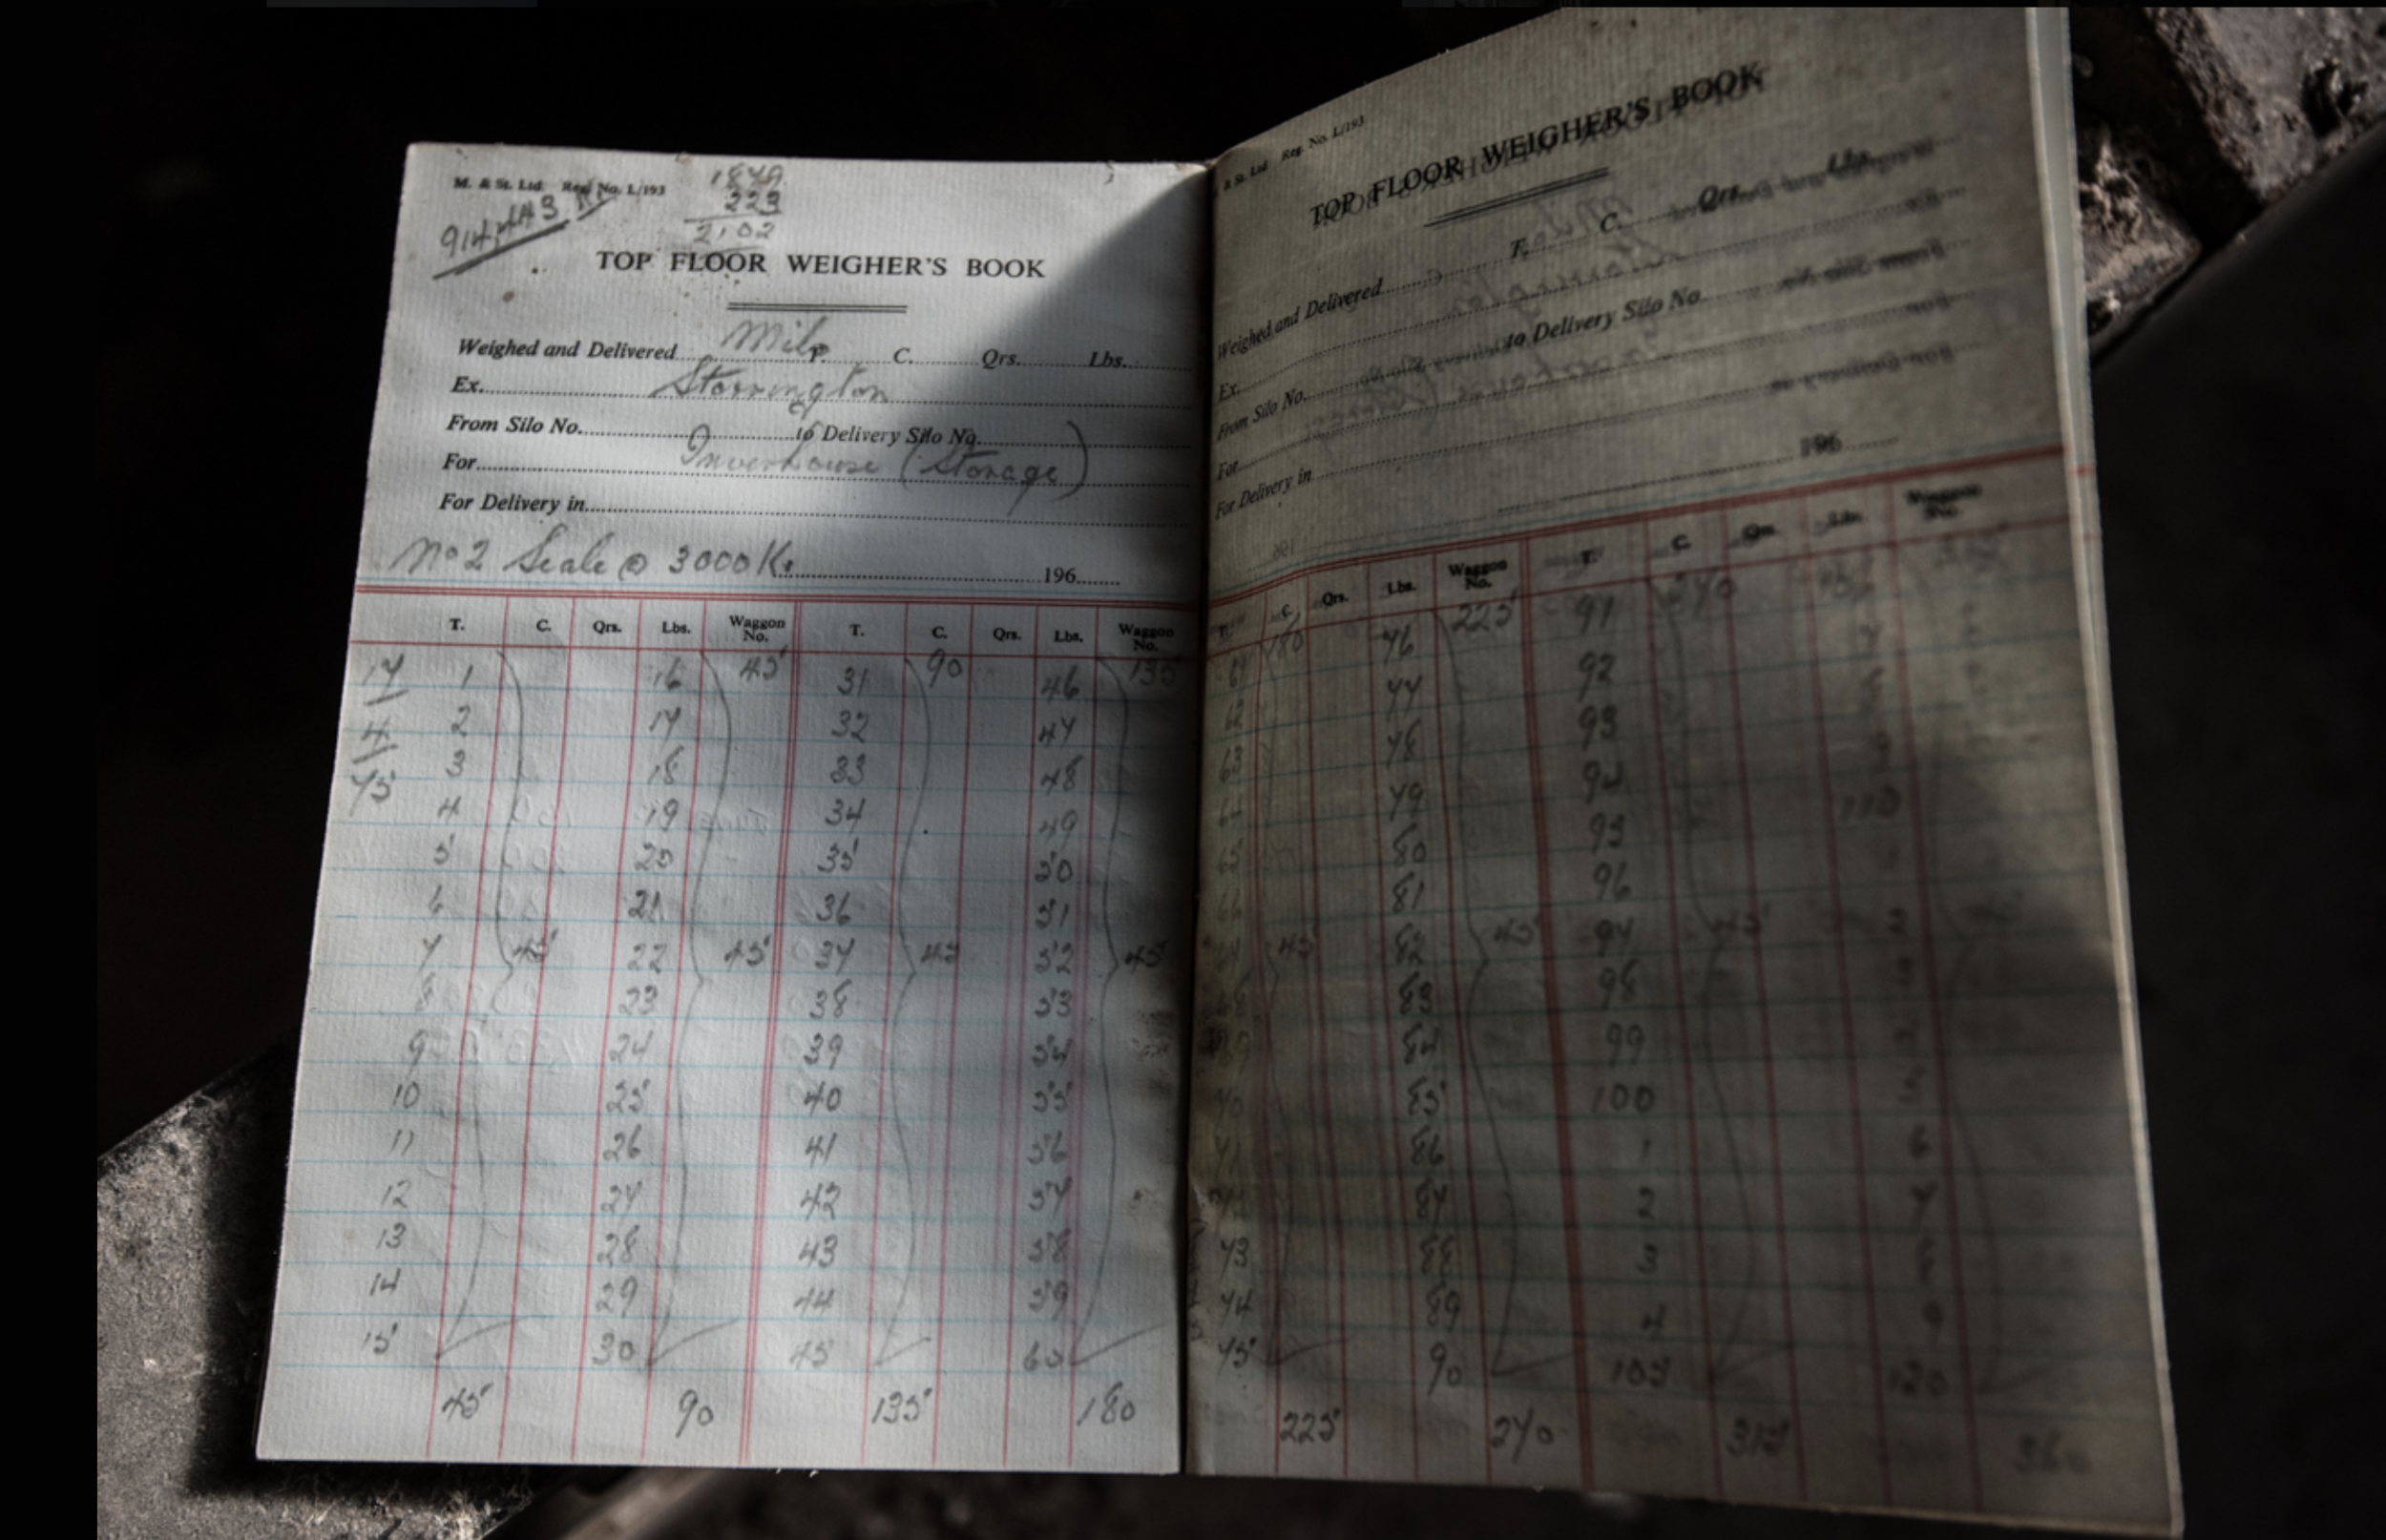 M. & St. Ltd. Reg. No. L/193
1879
223
2102
TOP FLOOR WEIGHER'S BOOK
Weighed and Delivered Milo T. C. Qrs. Lbs.
Ex. Storrington
From Silo No. to Delivery Silo No.
For Inverhouse (Storage)
For Delivery in
No 2 Scale @ 3000 K. 196
T. C. Qrs. Lbs. Waggon No. T. C. Qrs. Lbs. Waggon No.
17 1 16 45 31 90 46 135
4 2 17 32 47
75 3 18 33 48
4 19 34 49
5 20 35 50
6 21 36 51
7 45 22 45 37 45 52 45
8 23 38 53
9 24 39 54
10 25 40 55
11 26 41 56
12 27 42 57
13 28 43 58
14 29 44 59
15 30 45 60
45 90 135 180
& St. Ltd Reg. No. L/193
TOP FLOOR WEIGHER'S BOOK
Weighed and Delivered T. C. Qrs. Lbs.
Ex.
From Silo No. to Delivery Silo No.
For
For Delivery in
196
T. C. Qrs. Lbs. Waggon No. T. C. Qrs. Lbs. Waggon No.
61 180 76 225 91 270
62 77 92
63 78 93
64 79 94
65 80 95 110
66 81 96
45 82 45 97 45
83 98
84 99
85 100
86 1 6
87 2 7
73 88 3 8
74 89 4 9
75 90 105 120
225 270 315 360